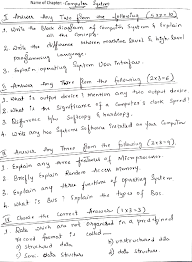 Name of Chapter - Computer System
I Answer Any Two from the following (5x2=10)
1. Write the Block diagram of Computer System & Explain
all the Concepts.
2. Write the difference between machine level & High level
programming language.
3. Explain operating System User Interface
II Answer Any Two from the following (2x3=6)
1. What is output device? Mention any two output device
2. What is the Significance of a Computer's clock Speed?
3. Difference b/w Softcopy & hardcopy.
4. Write any two System Software Installed on your Computer
III Answer Any Three from the following
1. Explain any three features of Microprocessor
2. Briefly Explain Random Access Memory.
3. Explain any three function of operating System
4. What is Bus? Explain the types of Bus.
IV Choose the Correct Answer (1x3=3)
1. Data which are not organized in a predefined
record format is called
a) structured data b) unstructured data
c) Semi data structure d) data structure